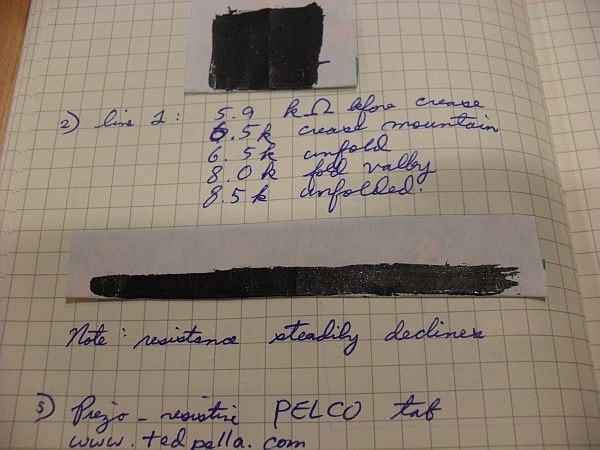 2) line 1: 5.9 kΩ before crease
6.5k crease mountain
6.5k unfold
8.0k fold valley
8.5k unfolded.
Note: resistance steadily declines
3) Piezo-resistive PELCO tab
www.tedpella.com